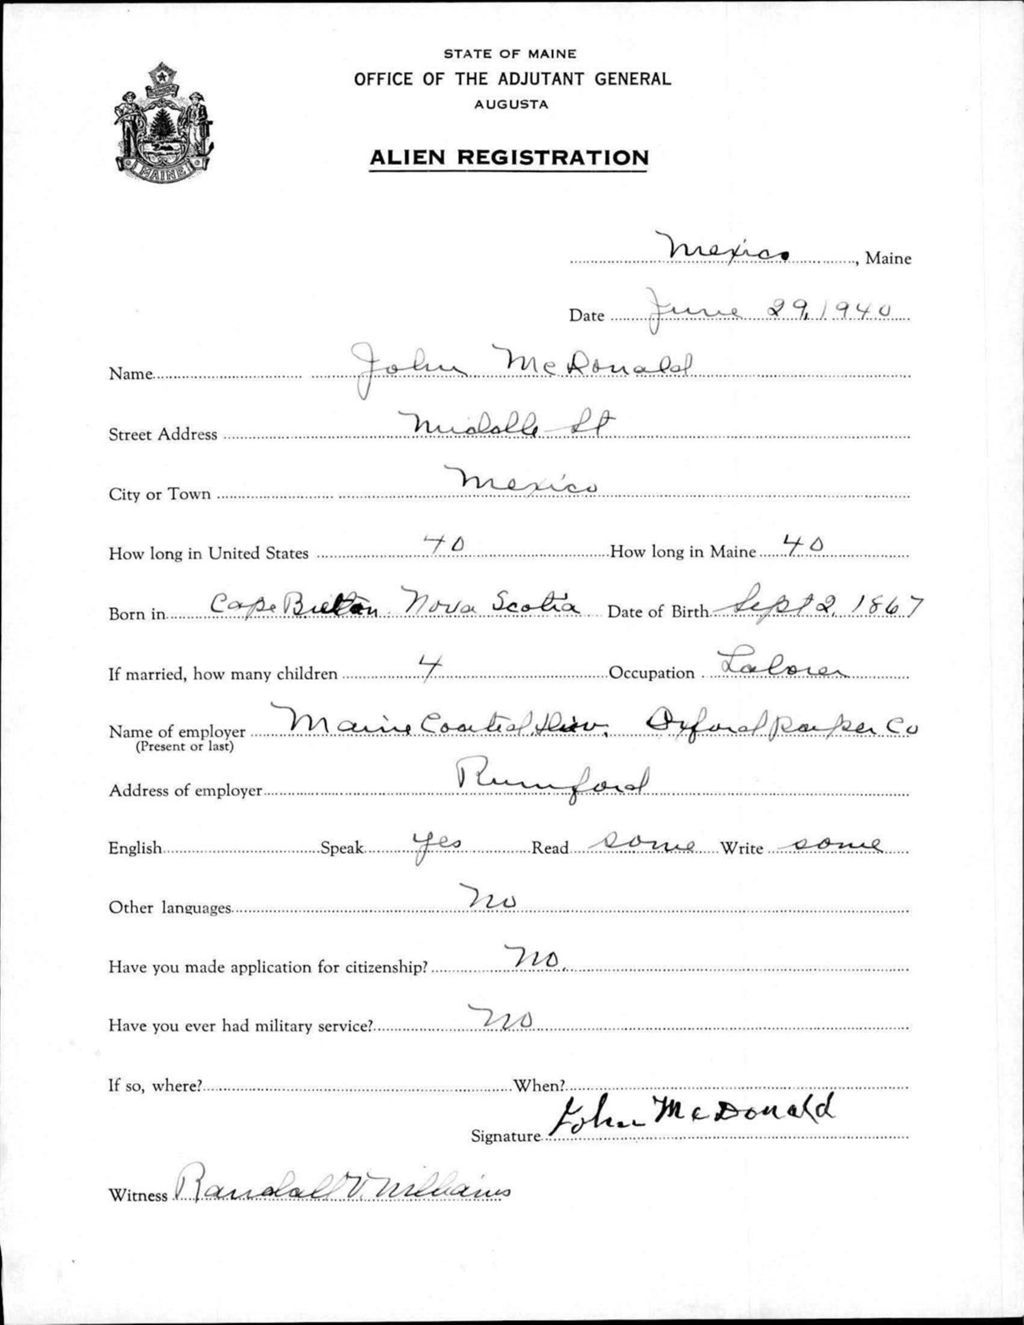 STATE OF MAINE
OFFICE OF THE ADJUTANT GENERAL
AUGUSTA
ALIEN REGISTRATION
MAINE
Mexico, Maine
Date June 29, 1940
Name John McDonald
Street Address Middle St
City or Town Mexico
How long in United States 40 How long in Maine 40
Born in Cape Breton Nova Scotia Date of Birth Sept 2, 1867
If married, how many children 4 Occupation Laborer
Name of employer Maine Coated Div. Oxford Paper Co
(Present or last)
Address of employer Rumford
English Speak yes Read some Write some
Other languages No
Have you made application for citizenship? No.
Have you ever had military service? No
If so, where? When?
Signature John McDonald
Witness Randall V. Williams